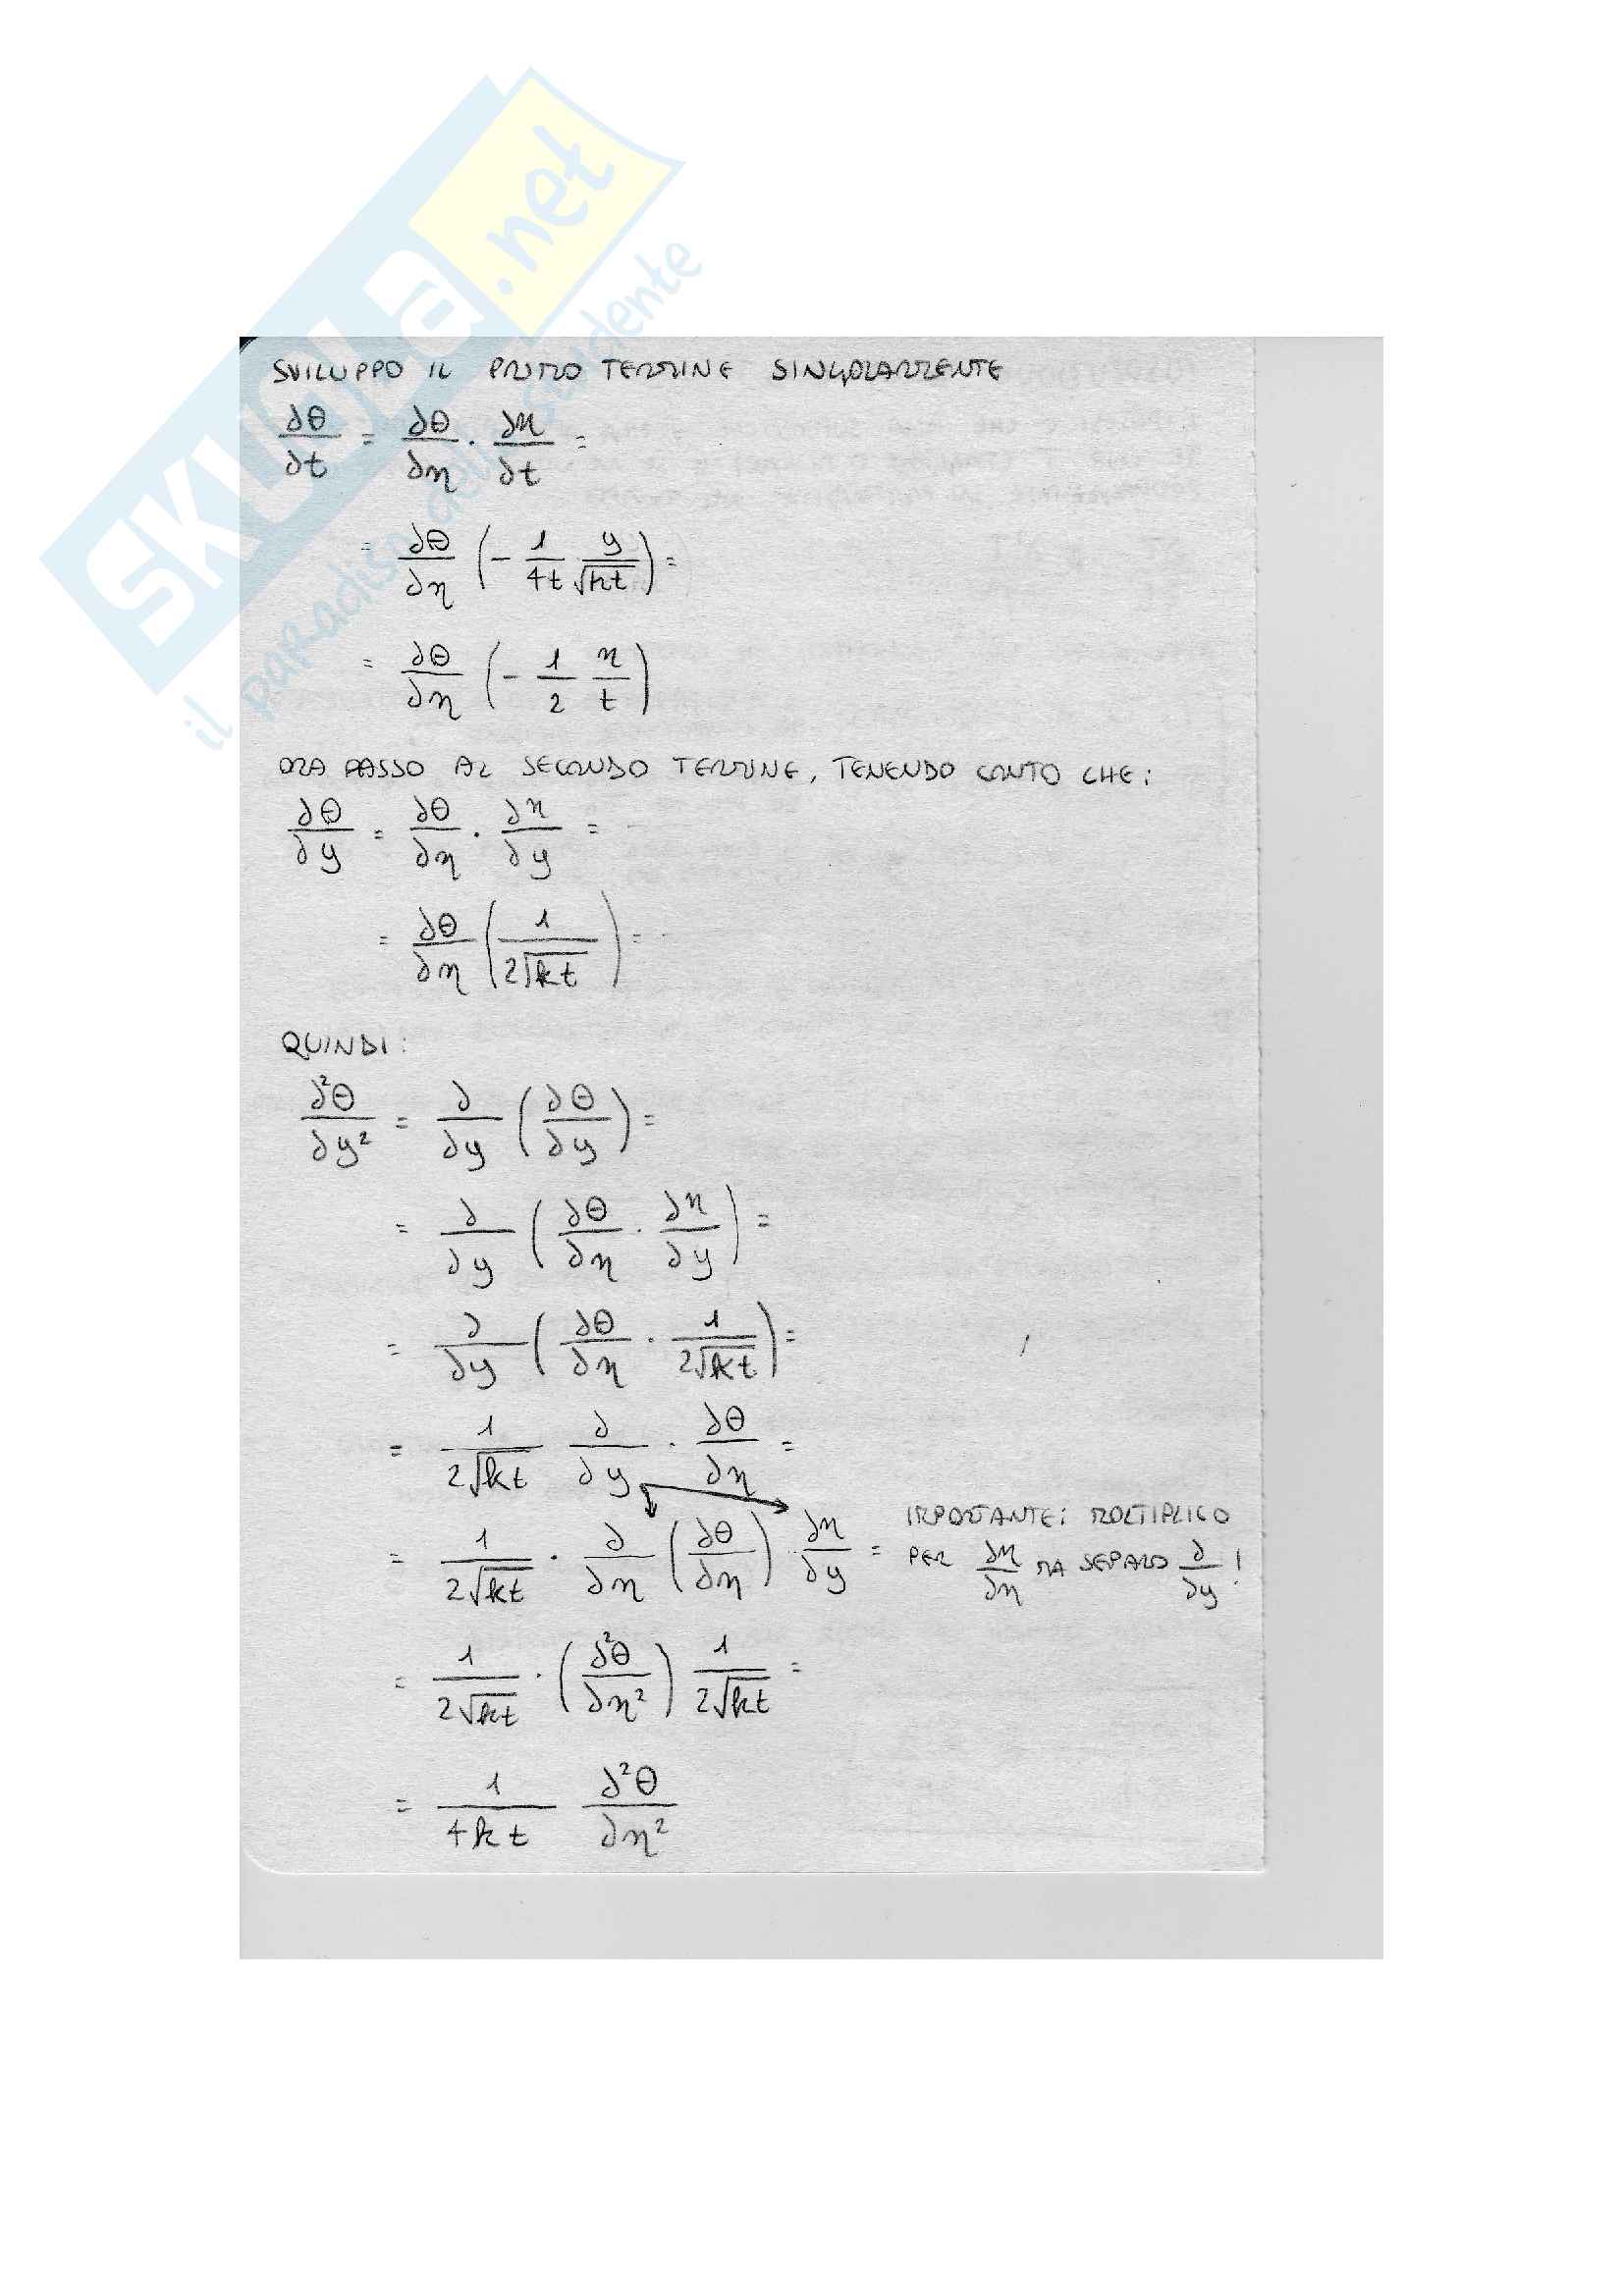 SKUOLA.net
il paradiso dello studente
SVILUPPO IL PRIMO TERMINE SINGOLARMENTE
∂θ/∂t = ∂θ/∂η · ∂η/∂t =
= ∂θ/∂η (- 1/4t y/√kt) =
= ∂θ/∂η (- 1/2 η/t)
ORA PASSO AL SECONDO TERMINE, TENENDO CONTO CHE:
∂θ/∂y = ∂θ/∂η · ∂η/∂y =
= ∂θ/∂η (1/2√kt) =
QUINDI:
∂²θ/∂y² = ∂/∂y (∂θ/∂y) =
= ∂/∂y (∂θ/∂η · ∂η/∂y) =
= ∂/∂y (∂θ/∂η · 1/2√kt) =
= 1/2√kt ∂/∂y · ∂θ/∂η =
= 1/2√kt · ∂/∂η (∂θ/∂η) · ∂η/∂y = IMPORTANTE: MOLTIPLICO
PER ∂η/∂η MA SEPARO ∂/∂y !
= 1/2√kt · (∂²θ/∂η²) 1/2√kt =
= 1/4kt ∂²θ/∂η²